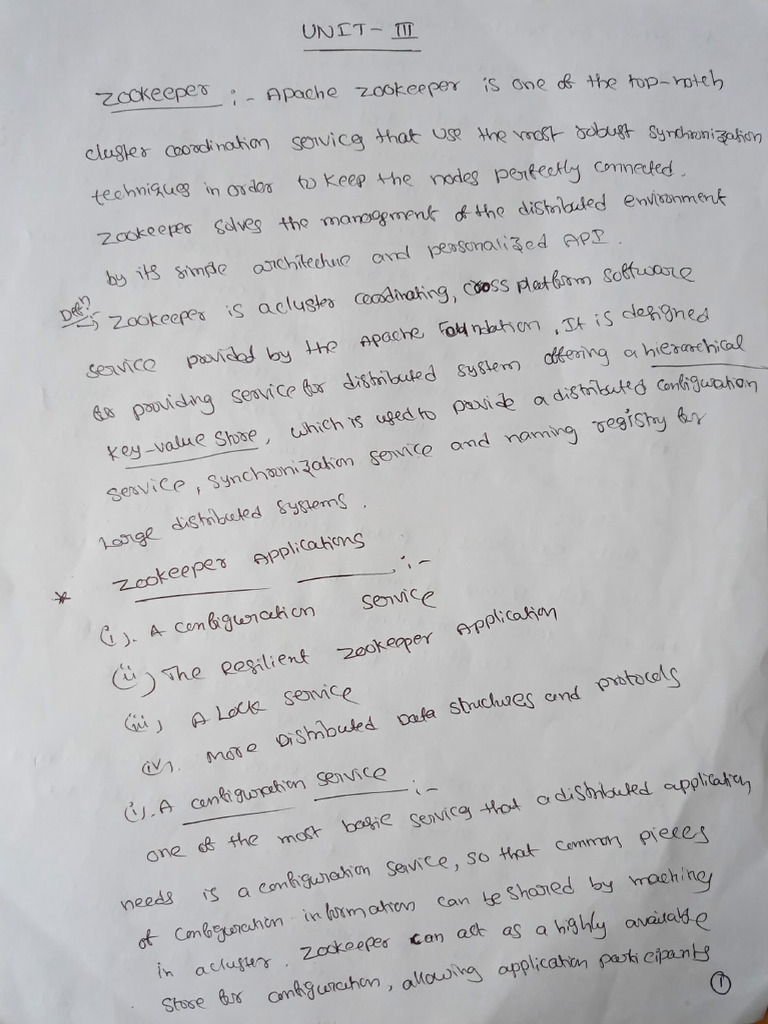 UNIT - III
Zookeeper :- Apache Zookeeper is one of the top-notch
cluster coordination services that use the most robust synchronization
techniques in order to keep the nodes perfectly connected.
Zookeeper solves the management of the distributed environment
by its simple architecture and personalized API.
Defn:- Zookeeper is a cluster coordinating, cross platform software
service provided by the Apache Foundation. It is designed
for providing service for distributed system offering a hierarchical
key-value store, which is used to provide a distributed configuration
service, synchronization service and naming registry for
large distributed systems.
* Zookeeper Applications :-
(i). A configuration service
(ii) The Resilient Zookeeper Application
(iii) A Lock service
(iv). More Distributed Data structures and protocols
(i). A configuration service :-
one of the most basic services that a distributed application
needs is a configuration service, so that common pieces
of configuration information can be shared by machines
in a cluster. Zookeeper can act as a highly available
store for configuration, allowing application participants
1